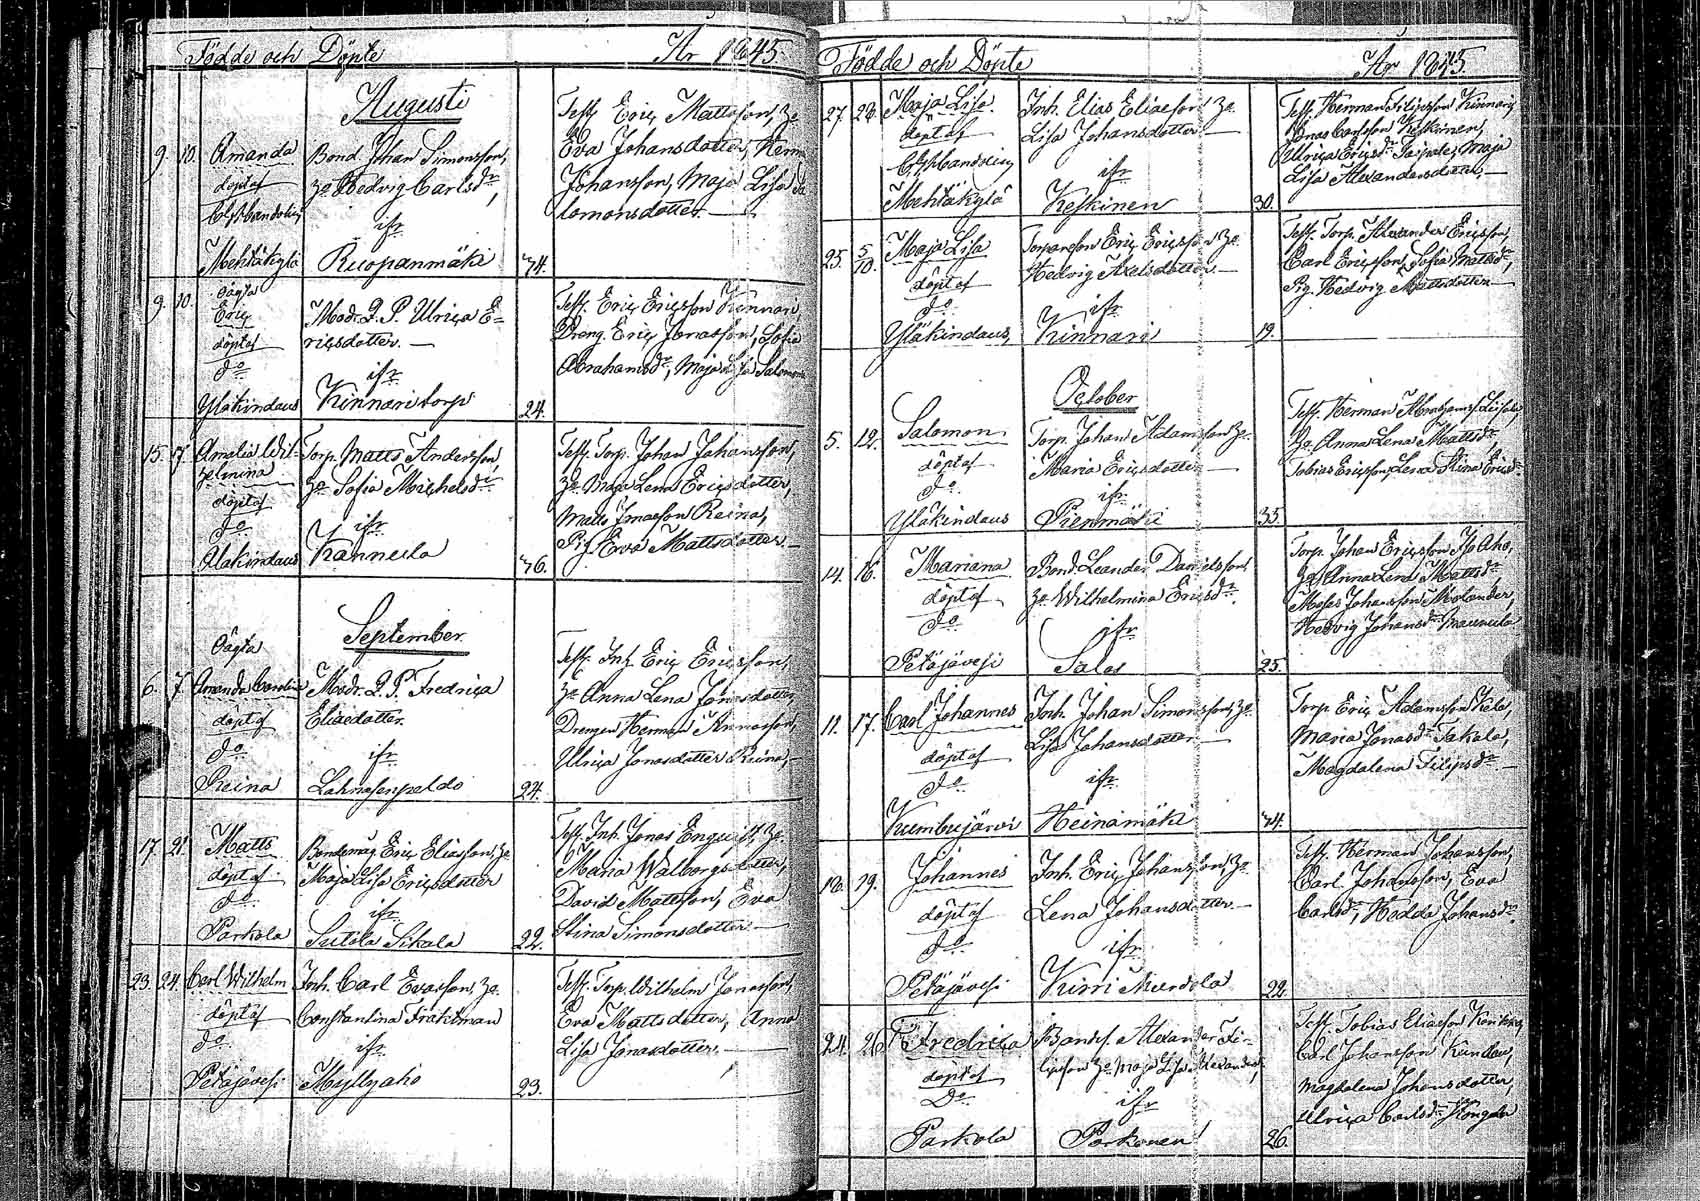 Födde och Döpte År 1845.
Augusti
9. 10. Amanda
döpt af
Mehtäkylä
Bond. Johan Simonsson,
h:o Hedvig Carlsdr,
ifr
Ruopanmäki
34.
Test. Eric Mattsson, h:o
Eva Johansdotter, Herm
Johansson, Maja Lisa Sa
lomonsdotter.
9. 10. Oägta
Eric
döpt af
do
Yläkindaus
Modr. Q. P. Ulrica E=
ricsdotter.
ifr
Kinnari torp
24.
Test. Eric Ericsson Kinnari,
Dreng. Eric Jonasson, Sofia
Abrahamsdr, Maja Lisa Salomons
15. 17. Amalia Wil-
helmina
döpt af
do
Yläkindaus
Torp. Matts Andersson,
h:o Sofia Michelsdr
ifr
Kannula
36.
Test. Torp. Johan Johansson,
h:o Maja Lena Ericsdotter,
Matts Reina,
Pig. Eva Mattsdotter
September
6. 7. Oägta
Amanda Carolina
döpt af
do
Reina
Modr. Q. P. Fredrica
Eliaedotter.
ifr
24.
Test. Inh. Eric Ericsson,
h:o Anna Lena Jonasdotter,
Drengen Herman
Ulrica Jonasdotter Reina,
17. 21. Matts
döpt af
do
Parkola
Bondemåg. Eric Eliasson, h:o
Maja Lisa Ericsdotter
ifr
Sutela Sikala
22.
Test. Inh. Jonas Enqvist, h:o
Maria Walborgsdotter,
David Mattsson, Eva
Stina Simonsdotter
23. 24. Carl Wilhelm
döpt af
do
Petäjävesi
Inh. Carl Evasson, h:o
Constantina
ifr
Myllyaho
23.
Test. Torp. Wilhelm Jonasson,
Eva Mattsdotter, Anna
Lisa Jonasdotter,
Födde och Döpte År 1845.
27. 28. Maja Lisa
döpt af
Mehtäkylä
Inh. Elias Eliaeson, h:o
Lisa Johansdotter
ifr
Keskinen
30.
Test. Herman Filipsson Kinnari,
Jonas Carlsson Keskinen,
Ulrica Ericsdr Taipale, Maja
Lisa Alexandersdotter,
25. 5/10. Maja Lisa
döpt af
do
Yläkindaus,
Torpareson Eric Ericsson, h:o
Hedvig Axelsdotter
ifr
Kinnari
19.
Test. Torp. Alexander Ericsson,
Carl Ericsson, Sofia Mattsdr,
Pig. Hedvig Mattsdotter
October
5. 12. Salomon
döpt af
do
Yläkindaus
Torp. Johan Adamsson, h:o
Maria Ericsdotter
ifr
Pienmäki
33.
Test. Herman
h:o Anna Lena Mattsdr
Tobias Ericsson, Lena Stina Ericsdr
14. 16. Mariana
döpt af
do
Petäjävesi
Bond. Leander Danielsson,
h:o Wilhelmina Ericsdr.
ifr
Salos
25.
Torp. Johan Ericsson Iso Aho,
h:o Anna Lena Mattsdr
Moses Johansson Molander,
Hedvig Johansdr Maunula
11. 17. Carl Johannes
döpt af
do
Kumbujärvi
Inh. Johan Simonsson, h:o
Lisa Johansdotter
ifr
Heinämäki
34.
Torp. Eric Adamsson
Maria Jonasdr Takala,
Magdalena Filipsdr
16. 19. Johannes
döpt af
do
Petäjävesi
Inh. Eric Johansson, h:o
Lena Johansdotter.
ifr
Kirri Murdola
22.
Test. Herman Johansson,
Carl Johansson, Eva
Carlsdr, Hedda Johansdr
24. 26. Fredrica
döpt af
Do
Parkola
Bondes. Alexander Fi-
lipsson h:o Maja Lisa Alexandersdr
ifr
Parkonen
26.
Test. Tobias Eliaeson
Carl Johansson
Magdalena Johansdotter,
Ulrica Carlsdr